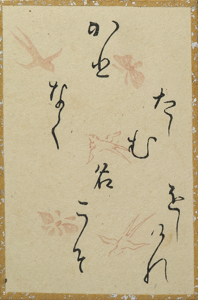 かひ
なく
たゝむ
名
こそ
をしけれ